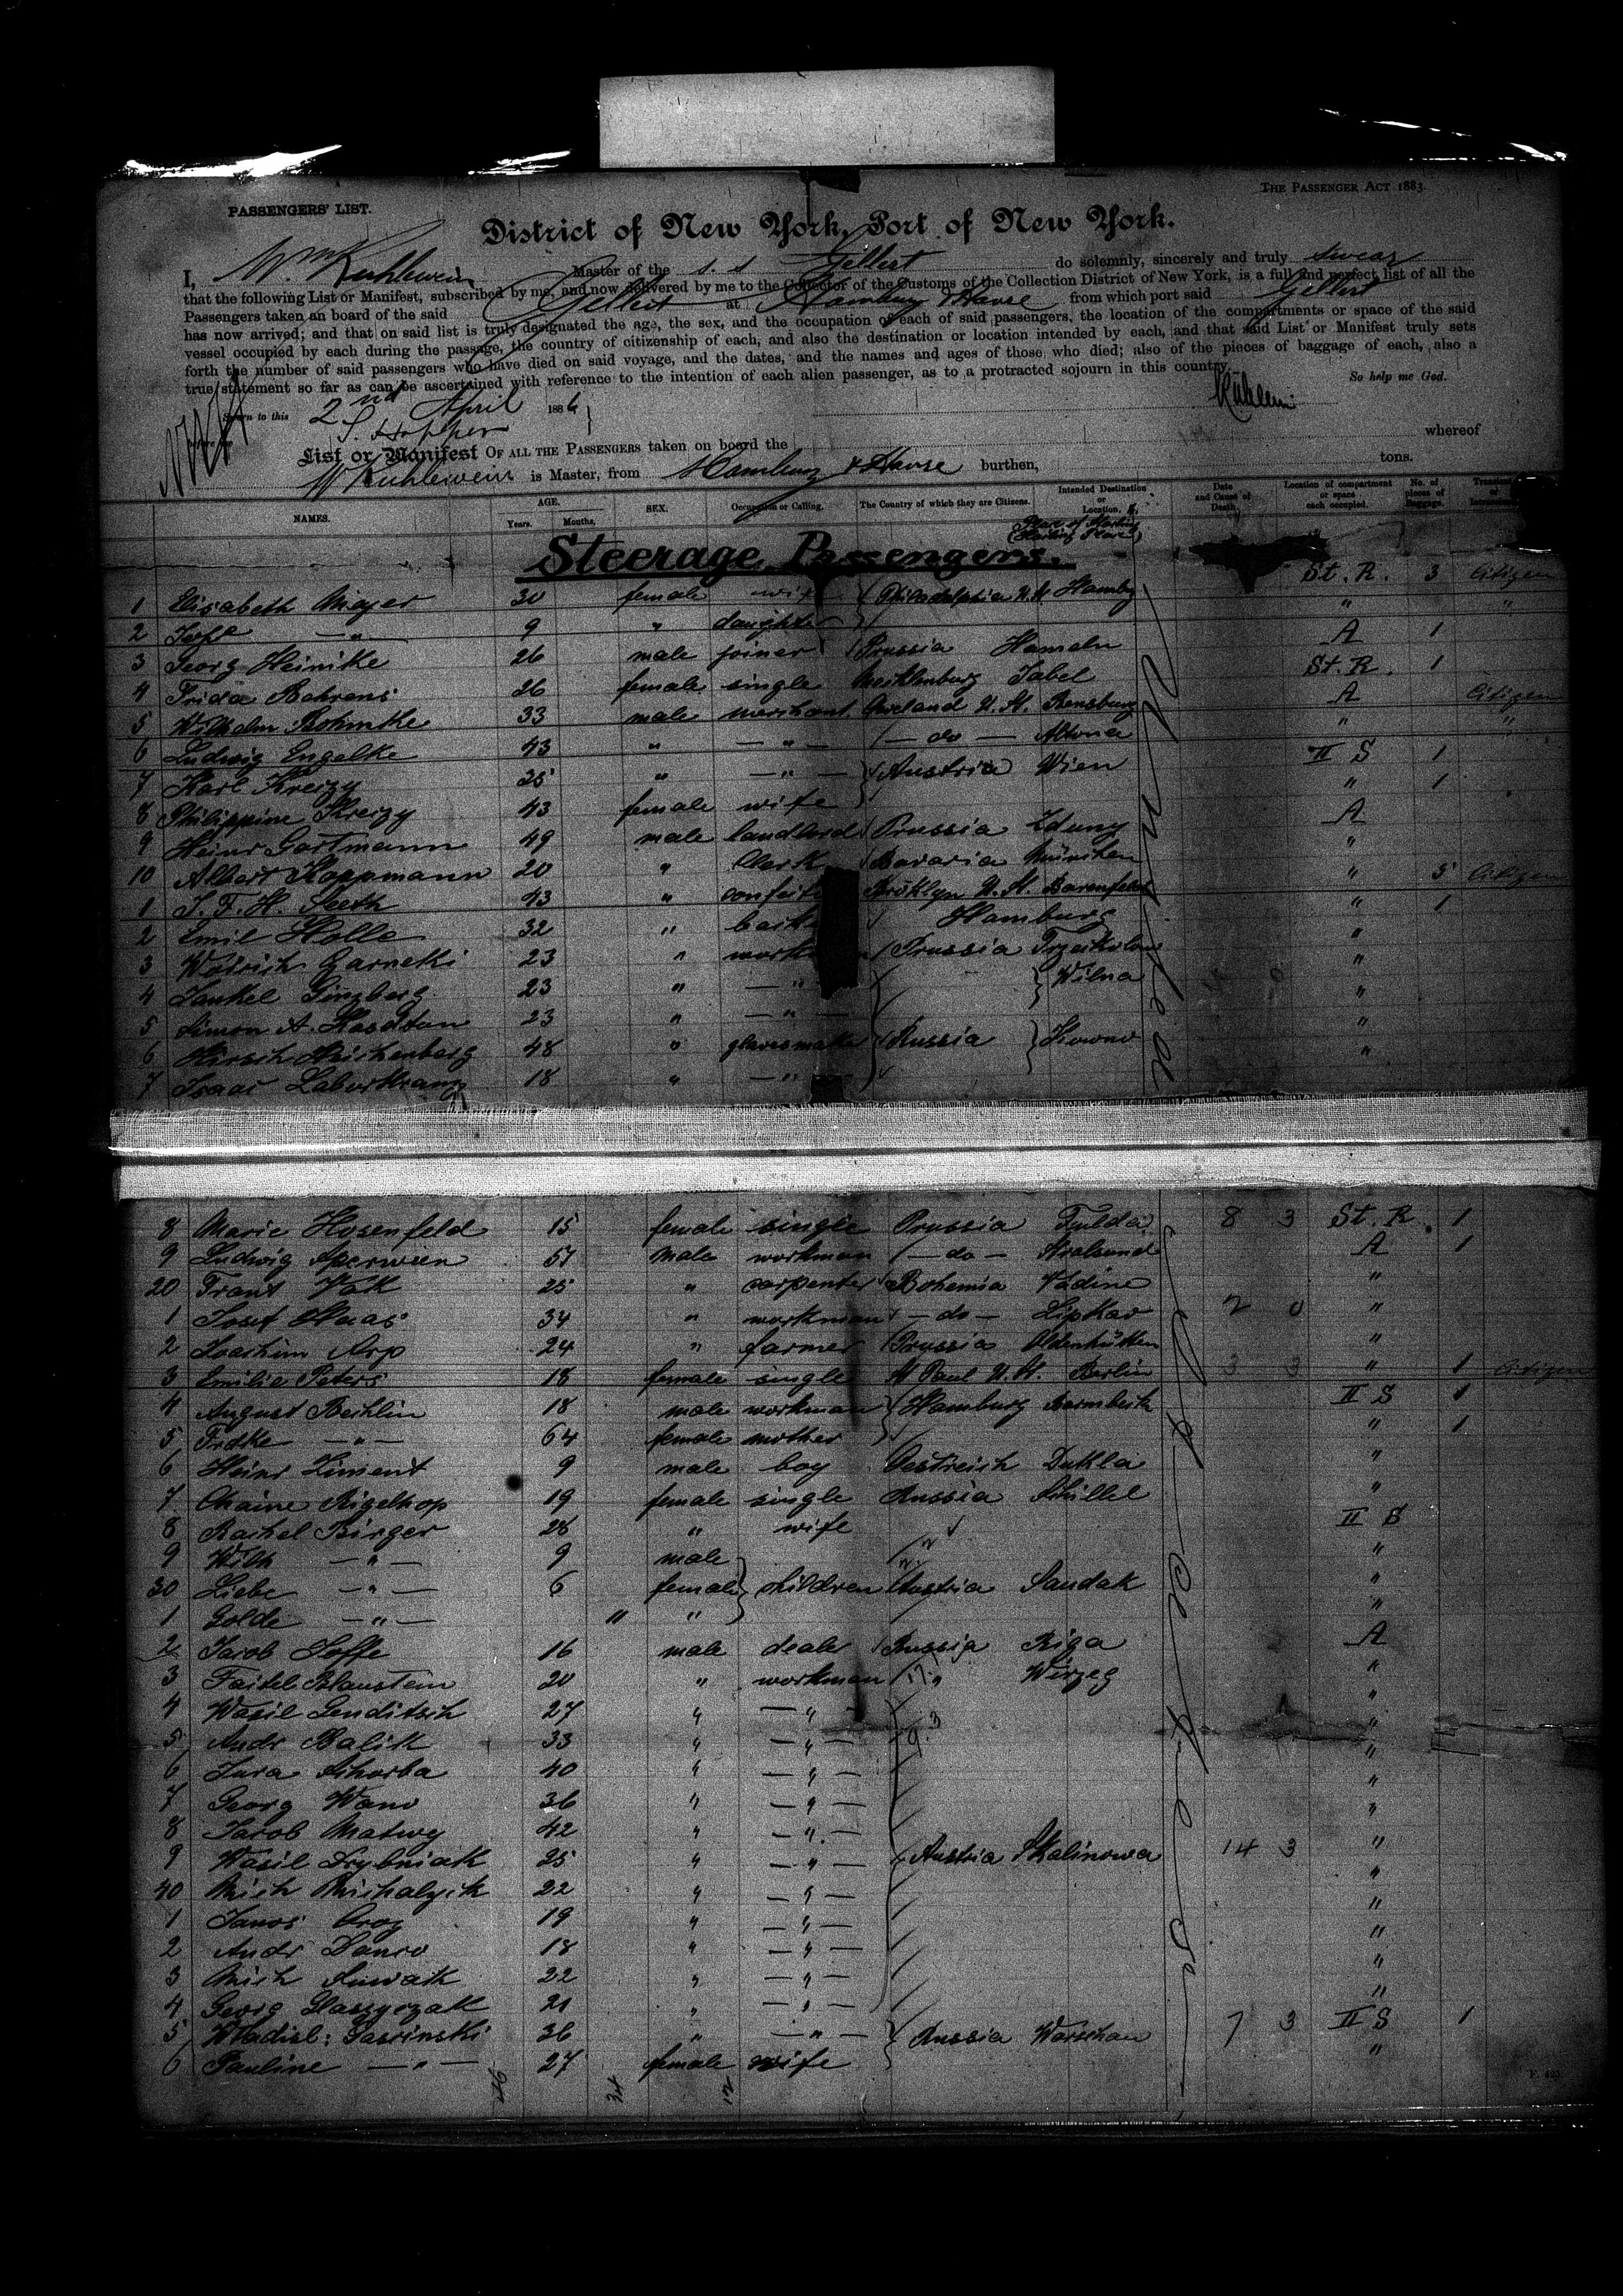 THE PASSENGER ACT 1883.
PASSENGERS' LIST.
District of New York, Port of New York.
I, Wm Kuhlewein Master of the s. s Gellert do solemnly, sincerely and truly swear
that the following List or Manifest, subscribed by me, and now delivered by me to the Collector of the Customs of the Collection District of New York, is a full and perfect list of all the
Passengers taken on board of the said Gellert at Hamburg & Havre from which port said Gellert
has now arrived; and that on said list is truly designated the age, the sex, and the occupation of each of said passengers, the location of the compartments or space of the said
vessel occupied by each during the passage, the country of citizenship of each, and also the destination or location intended by each, and that said List or Manifest truly sets
forth the number of said passengers who have died on said voyage, and the dates, and the names and ages of those who died; also of the pieces of baggage of each, also a
true statement so far as can be ascertained with reference to the intention of each alien passenger, as to a protracted sojourn in this country.
So help me God.
Sworn to this 2nd April 1886
before me S. Hopper
List or Manifest OF ALL THE PASSENGERS taken on board the whereof
W Kuhlewein is Master, from Hamburg & Havre burthen, tons.
NAMES. AGE. Years. Months. SEX. Occupation or Calling. The Country of which they are Citizens. Intended Destination or Location. Date and Cause of Death. Location of compartment or space each occupied. No. of pieces of Baggage.
Steerage Passengers.
1 Elisabeth Meyer 30 female wife Philadelphia U. St. Hambg St. R. 3 Citizen
2 — " — 9 " daughter " "
3 Georg Heinike 26 male joiner Prussia Hameln A 1
4 Frida Behrens 26 female single Mecklenburg Jabel St. R. 1
5 Wilhelm Bohmke 33 male merchant U. St. Rensburg A Citizen
6 Ludwig Engelke 43 " — " — — do — Altona " "
7 Karl Kreizy 35 " — " — Austria Wien II S 1
8 Philippine Kreizy 43 female wife " 1
9 Heinr Gartmann 49 male landlord Prussia A
10 Albert Koppmann 20 " Clerk Bavaria München "
1 J. F. H. Seeth 43 " Bröklyn U. St. " 5 Citizen
2 Emil Holle 32 " Hamburg " 1
3 Garneki 23 " Prussia "
4 Jankel Ginzberg 23 " — " — Wilna "
5 Simon A. 23 " — " — "
6 Hirsch 48 " Russia Kowno "
7 Isaac 18 " — " —
8 Marie Hosenfeld 15 female single Prussia Fulda 8 3 St. R. 1
9 Ludwig 57 male workman — do — Stralsund A 1
20 Frant Vak 25 " carpenter Bohemia Vadine "
1 Josef Haas 34 " workman — do — Lipkov 2 0 "
2 Joachim Arp 24 " farmer Prussia Oldenhütten "
3 Emilie Peters 18 female single St Paul U. St. Berlin 3 3 " 1 Citizen
4 August Bethlin 18 male workman Hamburg Barmbeck II S 1
5 — " — 64 female mother " 1
6 Heinr Liment 9 male boy Oestreich Dukla "
7 Chaine Rigelhop 19 female single Russia "
8 Rachel Birger 28 " wife II S
9 — " — 9 male "
30 Liebe — " — 6 female children Austria Sandak "
1 Golde — " — " " "
2 Jacob Joffe 16 male dealer Russia Riga A
3 Faitel Blaustein 20 " workman " "
4 Wasil Senditsch 27 " — " — "
5 Andr Balik 33 " — " — "
6 Jura 40 " — " — "
7 Georg Wano 36 " — " — "
8 Jacob Matwey 42 " — " — "
9 Wasil Drybniak 25 " — " — Austria Skalinowa 14 3 "
40 Mich Michalyik 22 " — " — "
1 Janos 19 " — " — "
2 Andr 18 " — " — "
3 Mich 22 " — " — "
4 Georg 21 " — " — "
5 Wladisl: Gasrinski 36 " — " — Russia Warschau 7 3 II S 1
6 Pauline — " — 27 female wife "